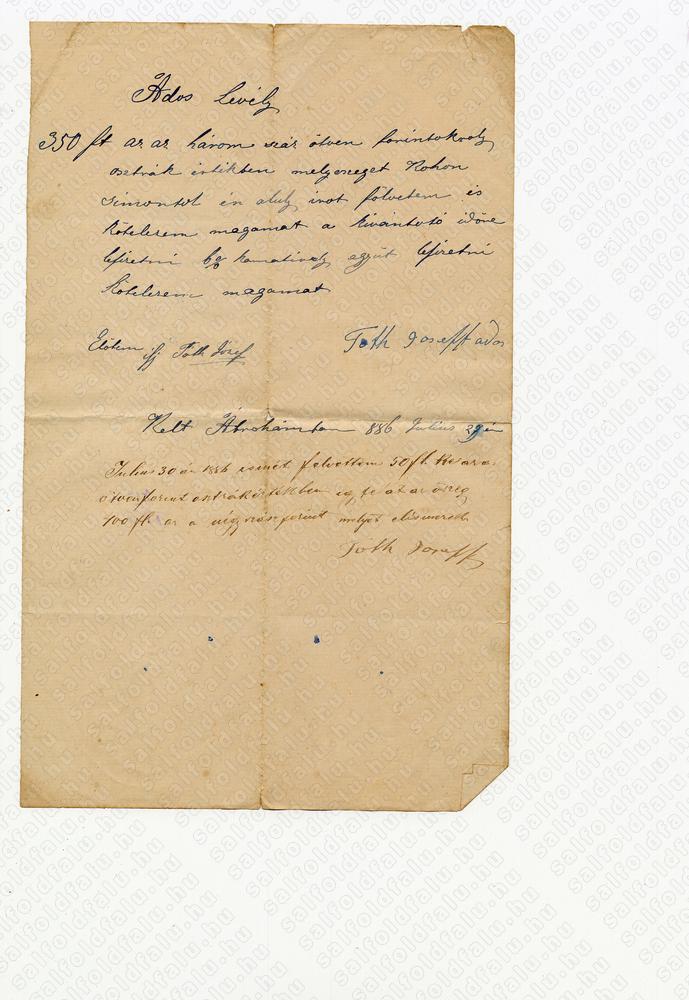 Ádos Levély
350 ft az az három száz ötven forintokroly
osztrák értékben melyeseget Kohon
Simontol én aluly irot fölvetem és
Kötelezem magamat a kivántató időre
lefizetni 6% kamatively együt lefizetni
Kötelezem magamat
Tóth Joseff ados
Elötem ifj Tóth Józef
Kelt Ábrohámban 886 Julius 29én
Julius 30 án 1886 ismét felvettem 50 ft
ötvenforint osztrákértékben
400 ft az a négyszáz forint melyet elismerek
Tóth Joseff